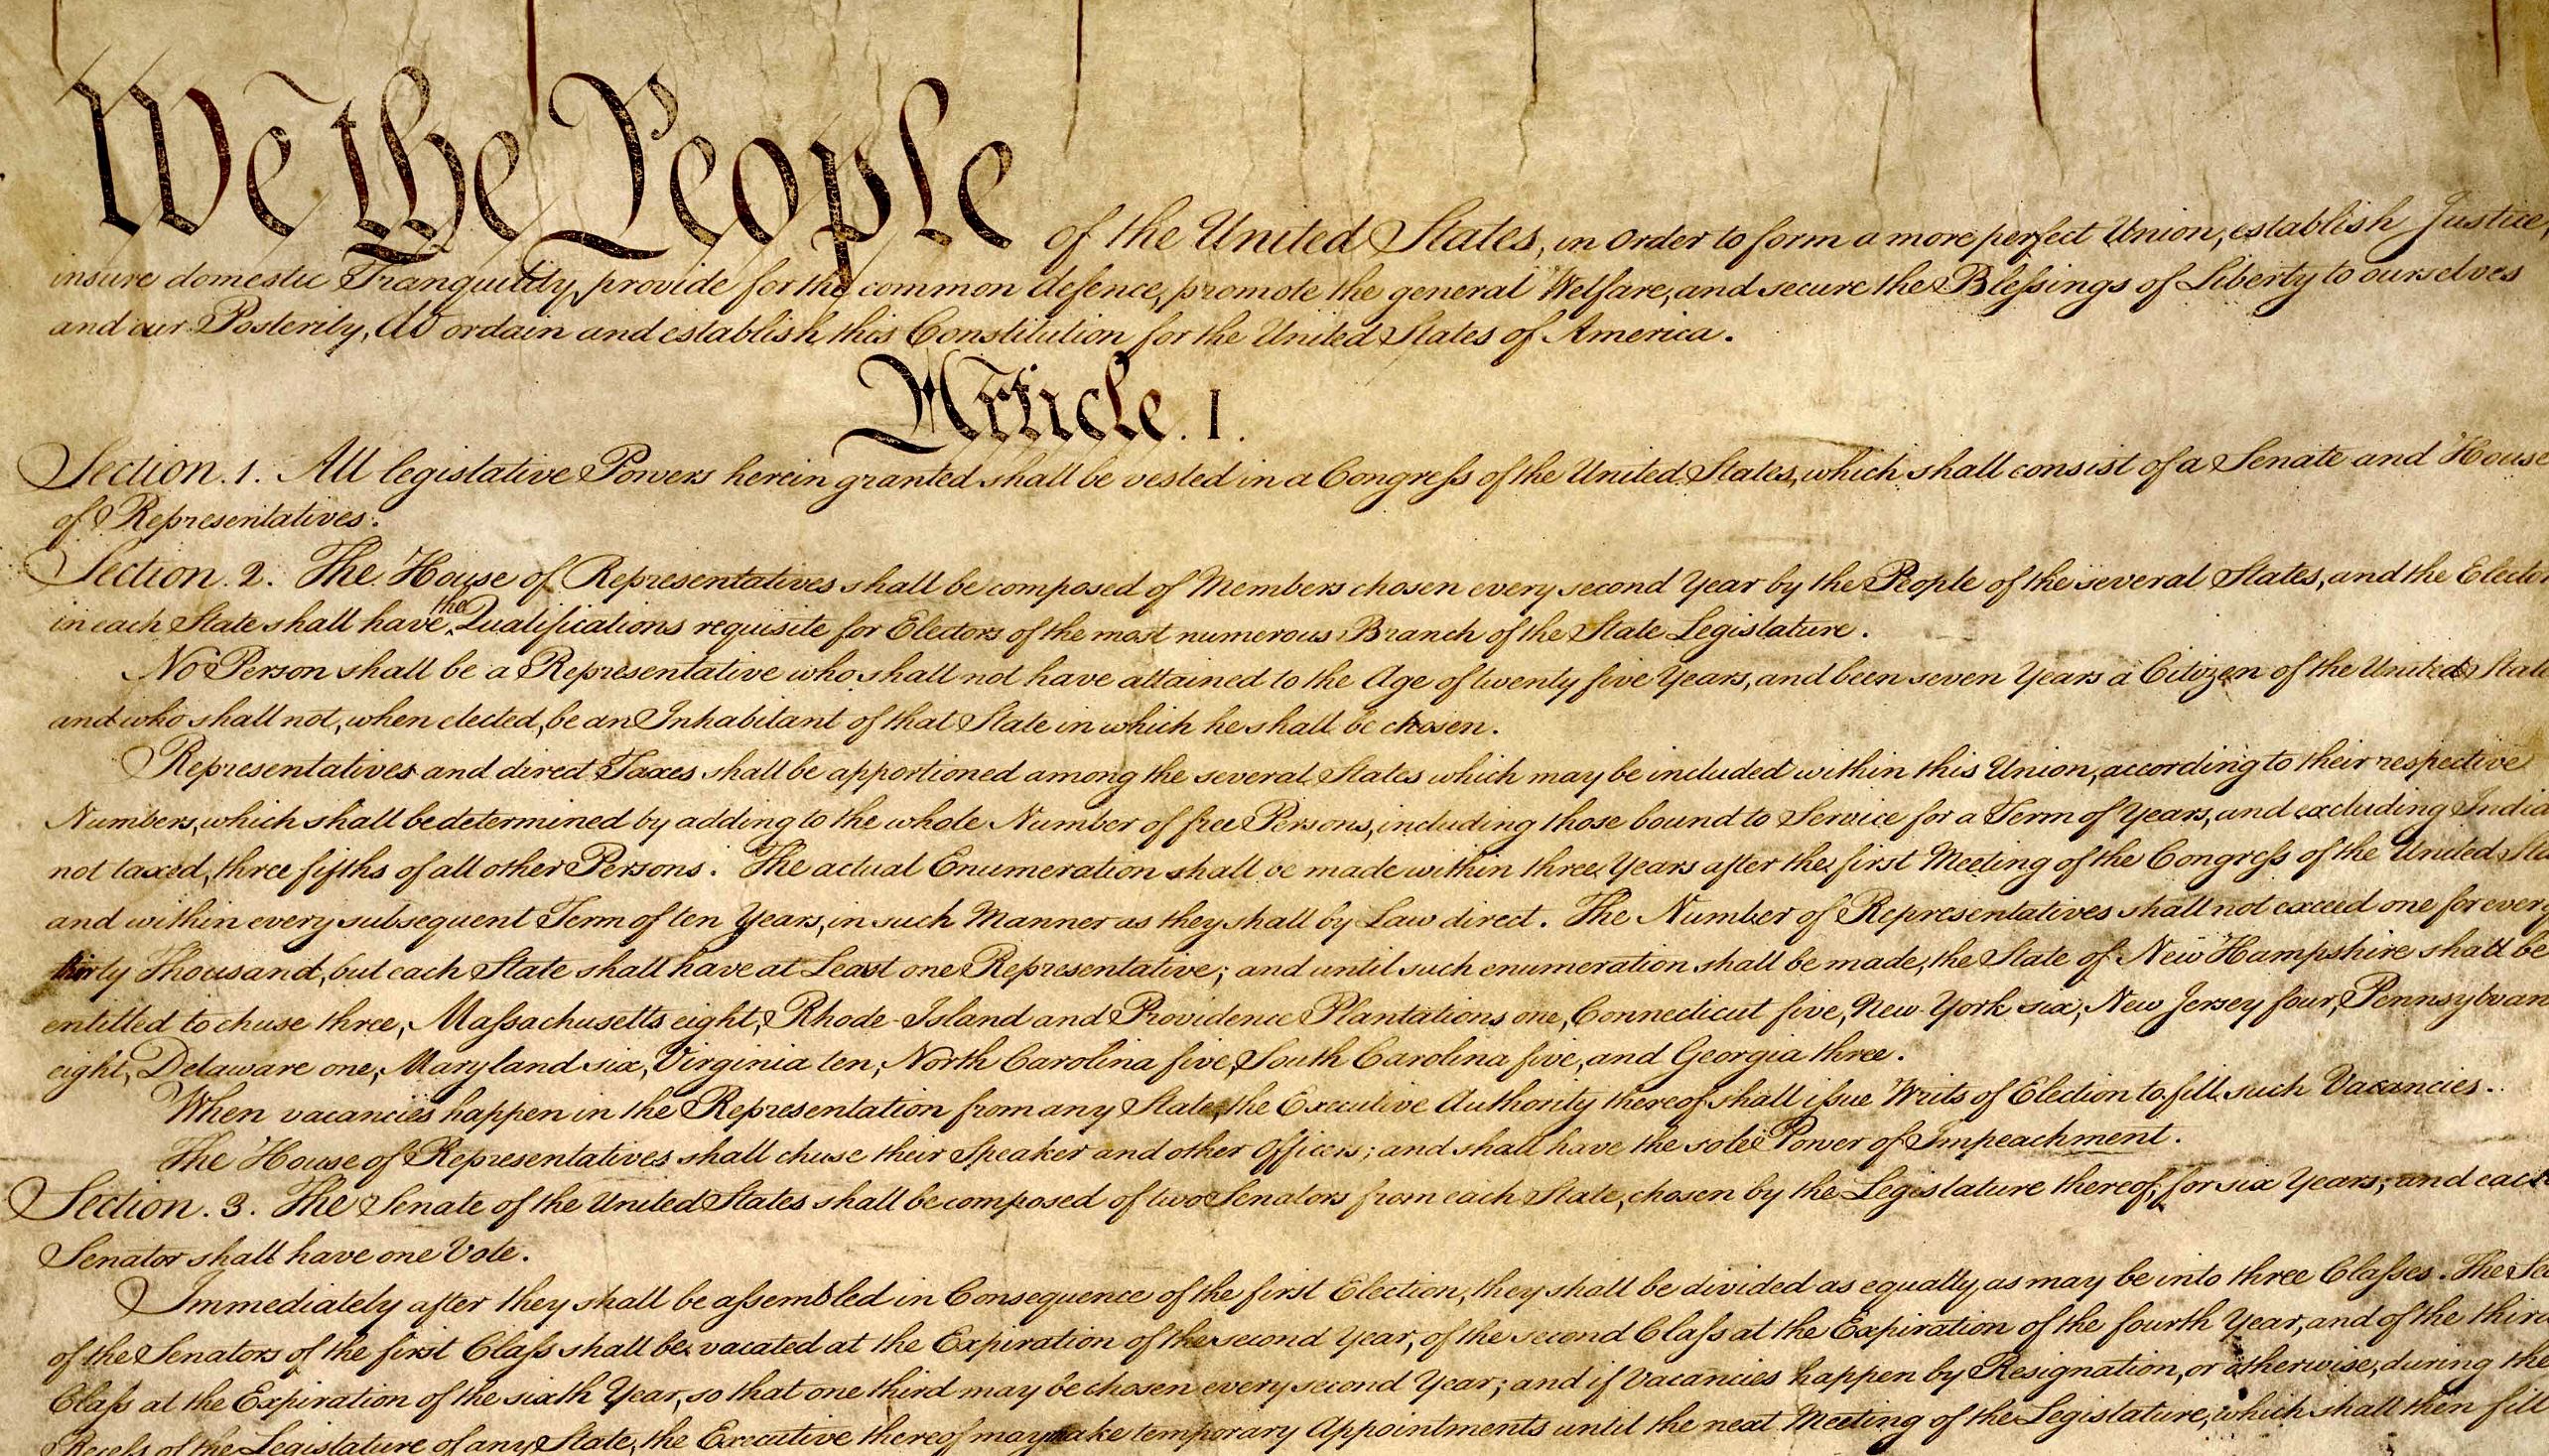 We the People of the United States, in Order to form a more perfect Union, establish Justice,
insure domestic Tranquility, provide for the common defence, promote the general Welfare, and secure the Blessings of Liberty to ourselves
and our Posterity, do ordain and establish this Constitution for the United States of America.
Article. I.
Section. 1. All legislative Powers herein granted shall be vested in a Congress of the United States, which shall consist of a Senate and House
of Representatives.
Section. 2. The House of Representatives shall be composed of Members chosen every second Year by the People of the several States, and the Elector
in each State shall have the Qualifications requisite for Electors of the most numerous Branch of the State Legislature.
No Person shall be a Representative who shall not have attained to the Age of twenty five Years, and been seven Years a Citizen of the United State
and who shall not, when elected, be an Inhabitant of that State in which he shall be chosen.
Representatives and direct Taxes shall be apportioned among the several States which may be included within this Union, according to their respective
Numbers, which shall be determined by adding to the whole Number of free Persons, including those bound to Service for a Term of Years, and excluding India
not taxed, three fifths of all other Persons. The actual Enumeration shall be made within three Years after the first Meeting of the Congress of the United Sta
and within every subsequent Term of ten Years, in such Manner as they shall by Law direct. The Number of Representatives shall not exceed one for every
thirty Thousand, but each State shall have at Least one Representative; and until such enumeration shall be made, the State of New Hampshire shall be
entitled to chuse three, Massachusetts eight, Rhode-Island and Providence Plantations one, Connecticut five, New-York six, New Jersey four, Pennsylvan
eight, Delaware one, Maryland six, Virginia ten, North Carolina five, South Carolina five, and Georgia three.
When vacancies happen in the Representation from any State, the Executive Authority thereof shall issue Writs of Election to fill such Vacancies.
The House of Representatives shall chuse their Speaker and other Officers; and shall have the sole Power of Impeachment.
Section. 3. The Senate of the United States shall be composed of two Senators from each State, chosen by the Legislature thereof, for six Years; and each
Senator shall have one Vote.
Immediately after they shall be assembled in Consequence of the first Election, they shall be divided as equally as may be into three Classes. The Sea
of the Senators of the first Class shall be vacated at the Expiration of the second Year, of the second Class at the Expiration of the fourth Year, and of the third
Class at the Expiration of the sixth Year, so that one third may be chosen every second Year; and if Vacancies happen by Resignation, or otherwise, during the
Recess of the Legislature of any State, the Executive thereof may make temporary Appointments until the next Meeting of the Legislature, which shall then fill